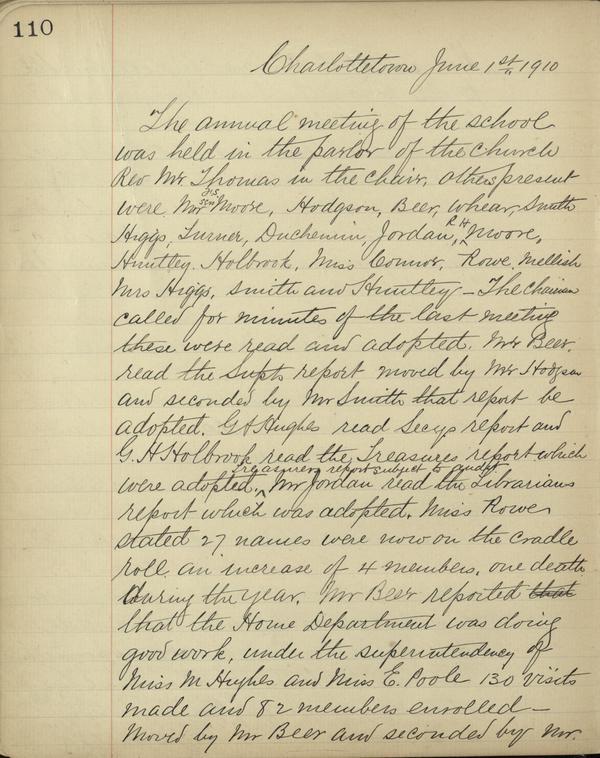 110
Charlottetown June 1st 1910
The annual meeting of the school
was held in the parlor of the church
Rev Mr Thomas in the chair, others present
were Mr Moore, Hodgson, Beer, Whear, Smith
Higgs, Turner, Duchemin, Jordan, R H Moore,
Huntley. Holbrook, Miss Connor, Rowe, Mellish
Mrs Higgs, Smith and Huntley – The chairman
called for minutes of the last meeting
these were read and adopted. Mr Beer.
read the Supts report moved by Mr Hodgson
and seconded by Mr Smith that report be
adopted. G A Hughes read Secys report and
G. H Holbrook read the Treasures report which
Treasurers report subject to audit
were adopted, Mr Jordan read the Librarians
report which was adopted. Miss Rowe
stated 27 names were now on the cradle
roll, an increase of 4 members, one death
during the year. Mr Beer reported that
that the Home Department was doing
good work, under the superintendency of
Miss M Hughes and Miss E. Poole 130 visits
made and 82 members enrolled –
Moved by Mr Beer and seconded by Mr.